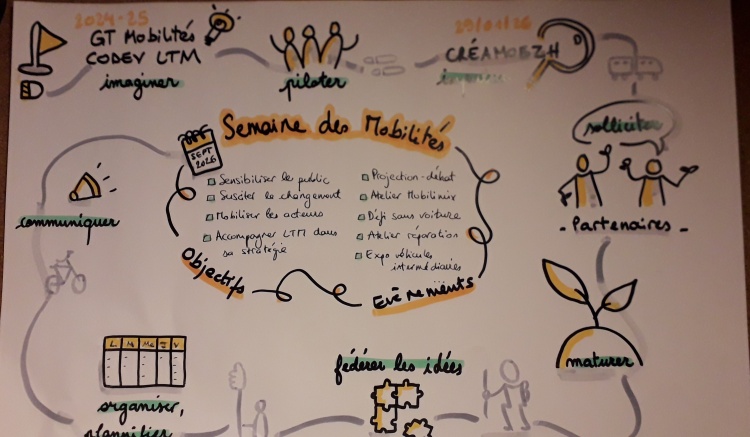 2024-25
GT Mobilités
CODEV LTM
imaginer
piloter
29/01/26
CRÉAMOBZH
solliciter
- Partenaires -
maturer
fédérer les idées
organiser,
plannifier
L M Me J V
communiquer
SEPT
2026
Semaine des Mobilités
Sensibiliser le public
Susciter le changement
Mobiliser les acteurs
Accompagner LTM dans
sa stratégie
Objectifs
Projection-débat
Atelier Mobilimix
Défi sans voiture
Atelier réparation
Expo véhicules
intermédiaires
Evènements